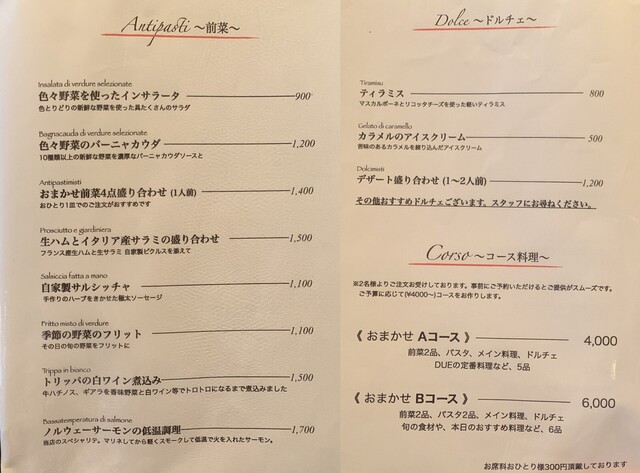 Antipasti ～前菜～
Insalata di verdure selezionate
色々野菜を使ったインサラータ 900
色とりどりの新鮮な野菜を使った具たくさんのサラダ
Bagnacauda di verdure selezionate
色々野菜のバーニャカウダ 1,200
10種類以上の新鮮な野菜を濃厚なバーニャカウダソースと
Antipastimisti
おまかせ前菜4点盛り合わせ (1人前) 1,400
おひとり1皿でのご注文がおすすめです
Prosciutto e giardiniera
生ハムとイタリア産サラミの盛り合わせ 1,500
フランス産生ハムと生サラミ 自家製ピクルスを添えて
Salsiccia fatta a mano
自家製サルシッチャ 1,100
手作りのハーブをきかせた極太ソーセージ
Fritto misto di verdure
季節の野菜のフリット 1,100
その日の旬の野菜をフリットに
Trippa in bianco
トリッパの白ワイン煮込み 1,500
牛ハチノス、ギアラを香味野菜と白ワイン等でトロトロになるまで煮込みました
Bassatemperatura di salmone
ノルウェーサーモンの低温調理 1,700
当店のスペシャリテ。マリネしてから軽くスモークして低温で火を入れたサーモン。
Dolce ～ドルチェ～
Tiramisu
ティラミス 800
マスカルポーネとリコッタチーズを使った軽いティラミス
Gelato di caramello
カラメルのアイスクリーム 500
苦味のあるカラメルを練り込んだアイスクリーム
Dolcimisti
デザート盛り合わせ (1～2人前) 1,200
その他おすすめドルチェございます。スタッフにお尋ねください。
Corso ～コース料理～
※2名様よりご注文お受けしております。事前にご予約いただけるとご提供がスムーズです。
ご予算に応じて(¥4000～)コースをお作りします。
《 おまかせ Aコース 》 4,000
前菜2品、パスタ、メイン料理、ドルチェ
DUEの定番料理など、5品
《 おまかせ Bコース 》 6,000
前菜2品、パスタ2品、メイン料理、ドルチェ
旬の食材や、本日のおすすめ料理など、6品
お席料おひとり様300円頂戴しております